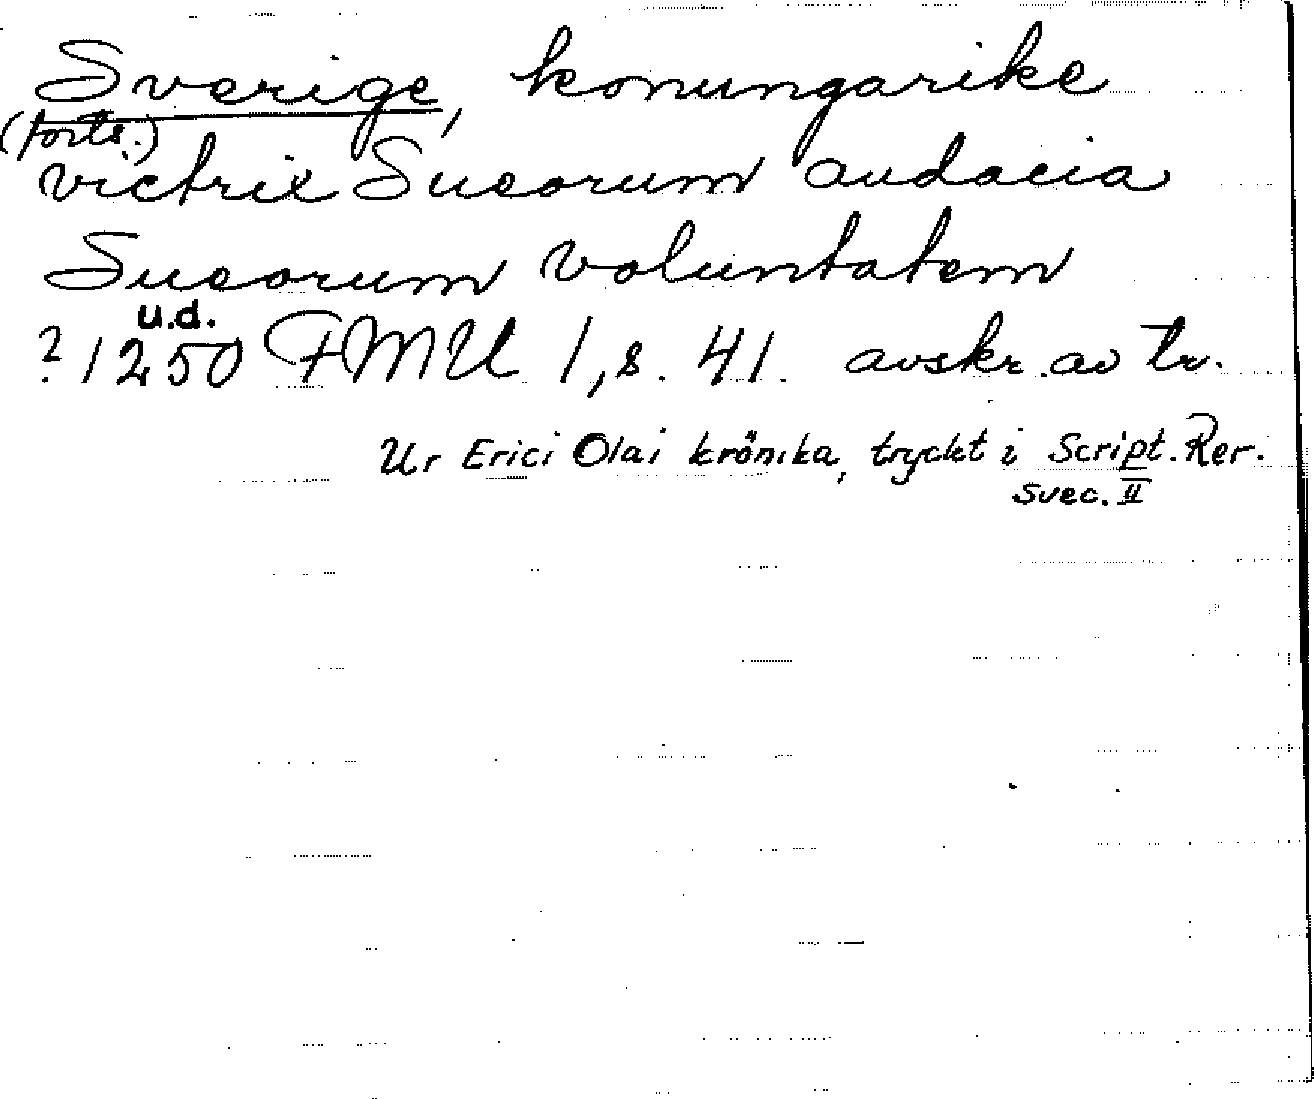 Sverige, konungarike
(forts.)
victrix Sueorum audacia
Sueorum voluntatem
u.d.
? 1250 FMU 1, s. 41. avskr. av tr.
Ur Erici Olai krönika, tryckt i Script. Rer.
Svec. II